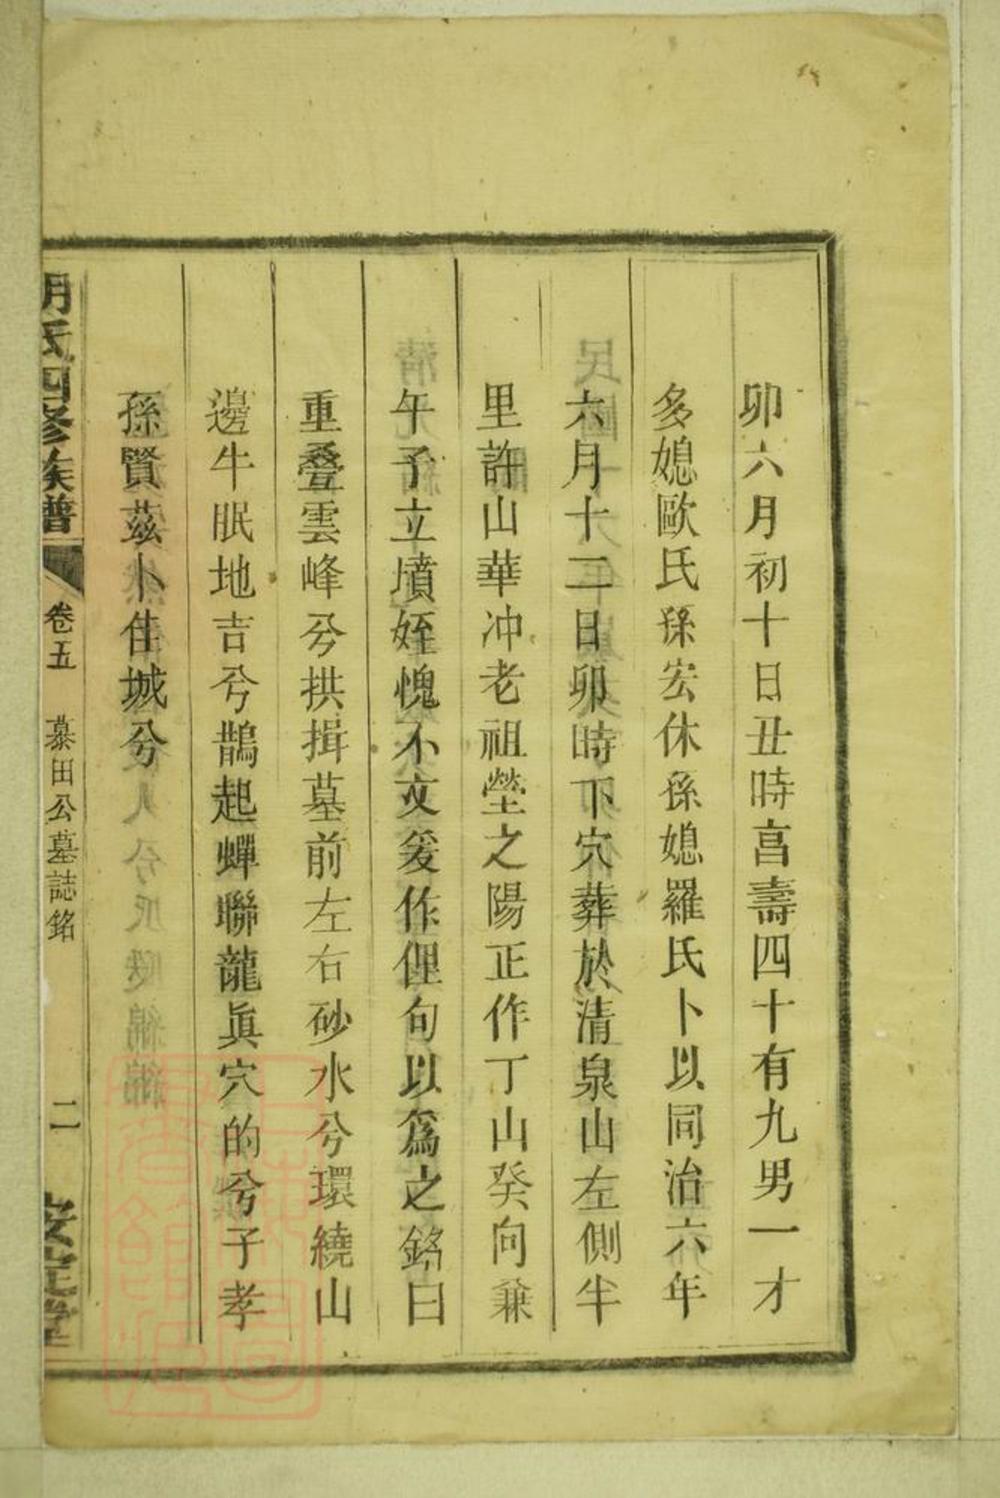 卯六月初十日丑時亯壽四十有九男一才
多媳歐氏孫宏休孫媳羅氏卜以同治六年
六月十二日卯時下穴葬於清泉山左側半
里許山華冲老祖塋之陽正作丁山癸向兼
午子立墳姪愧不文爰作俚句以爲之銘曰
重叠雲峰兮拱揖墓前左右砂水兮環繞山
邊牛眠地吉兮鵲起蟬聯龍眞穴的兮子孝
孫賢茲卜佳城兮
胡氏四修族譜
卷五
慕田公墓誌銘
二
安定堂